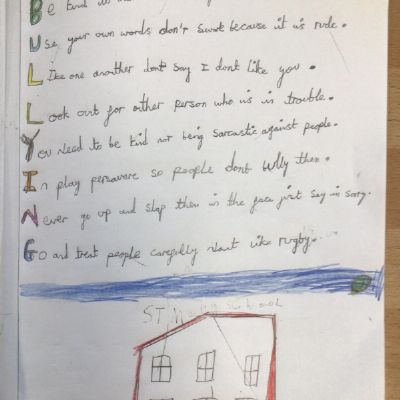 Be kind
Use your own words don't swear because it is rude.
Like one another dont say I dont like you.
Look out for other person who is in trouble.
You need to be kind not being sarcastic against people.
In play persavere so people dont bully them.
Never go up and slap them in the face just say im sorry.
Go and treat people carefully like rugby.
ST